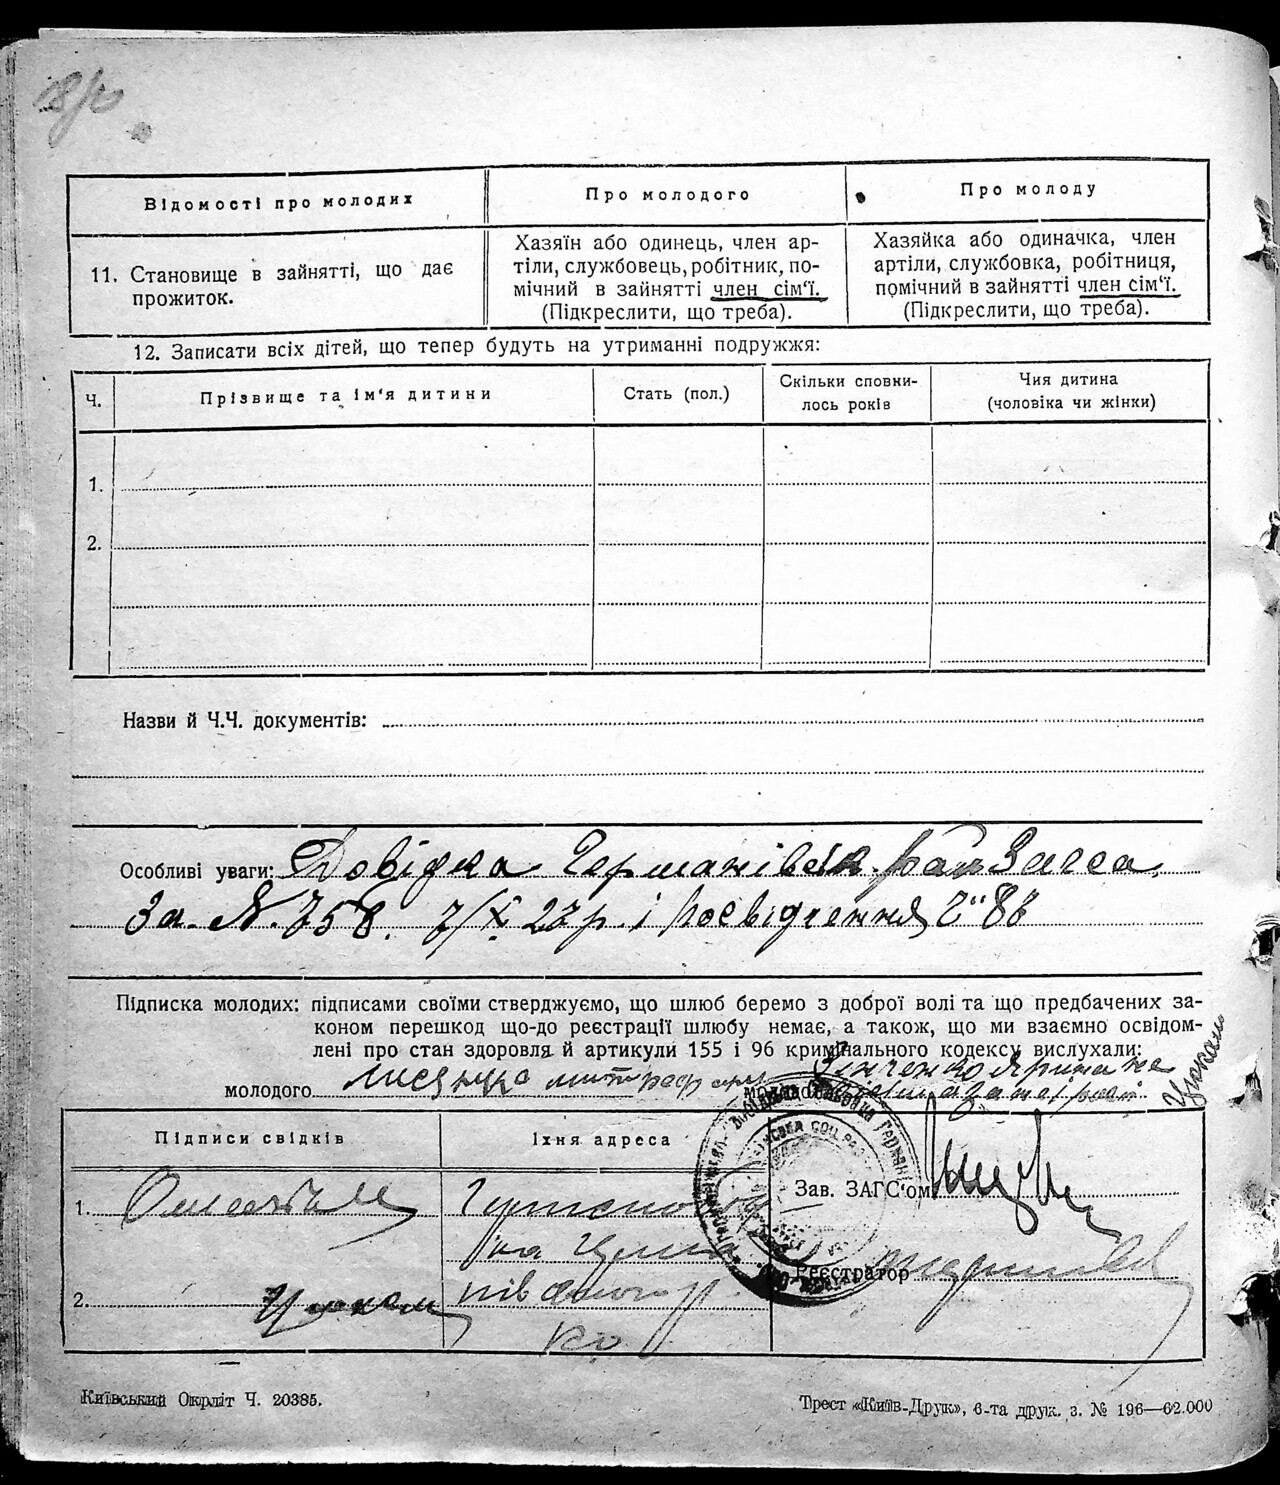 Відомості про молодих
Про молодого
Про молоду
11. Становище в зайнятті, що дає
прожиток.
Хазяїн або одинець, член ар-
тіли, службовець, робітник, по-
мічний в зайнятті член сім'ї.
(Підкреслити, що треба).
Хазяйка або одиначка, член
артіли, службовка, робітниця,
помічний в зайнятті член сім'ї.
(Підкреслити, що треба).
12. Записати всіх дітей, що тепер будуть на утриманні подружжя:
Ч.
Прізвище та ім'я дитини
Стать (пол.)
Скільки сповни-
лось років
Чия дитина
(чоловіка чи жінки)
1.
2.
Назви й Ч.Ч. документів:
Особливі уваги: Довідка Германівськ. рай Загса
За №. 758. 7/X 27 р. і посвідчення
Підписка молодих: підписами своїми стверджуємо, що шлюб беремо з доброї волі та що предбачених за-
коном перешкод що-до реєстрації шлюбу немає, а також, що ми взаємно освідом-
лені про стан здоровля й артикули 155 і 96 кримінального кодексу вислухали:
Зінченко
молодого
Підписи свідків
Їхня адреса
Зав. ЗАГС'ом
1.
Реєстратор
2.
Київський Окрліт Ч. 20385.
Трест «Київ-Друк», 6-та друк. з. № 196—62.000